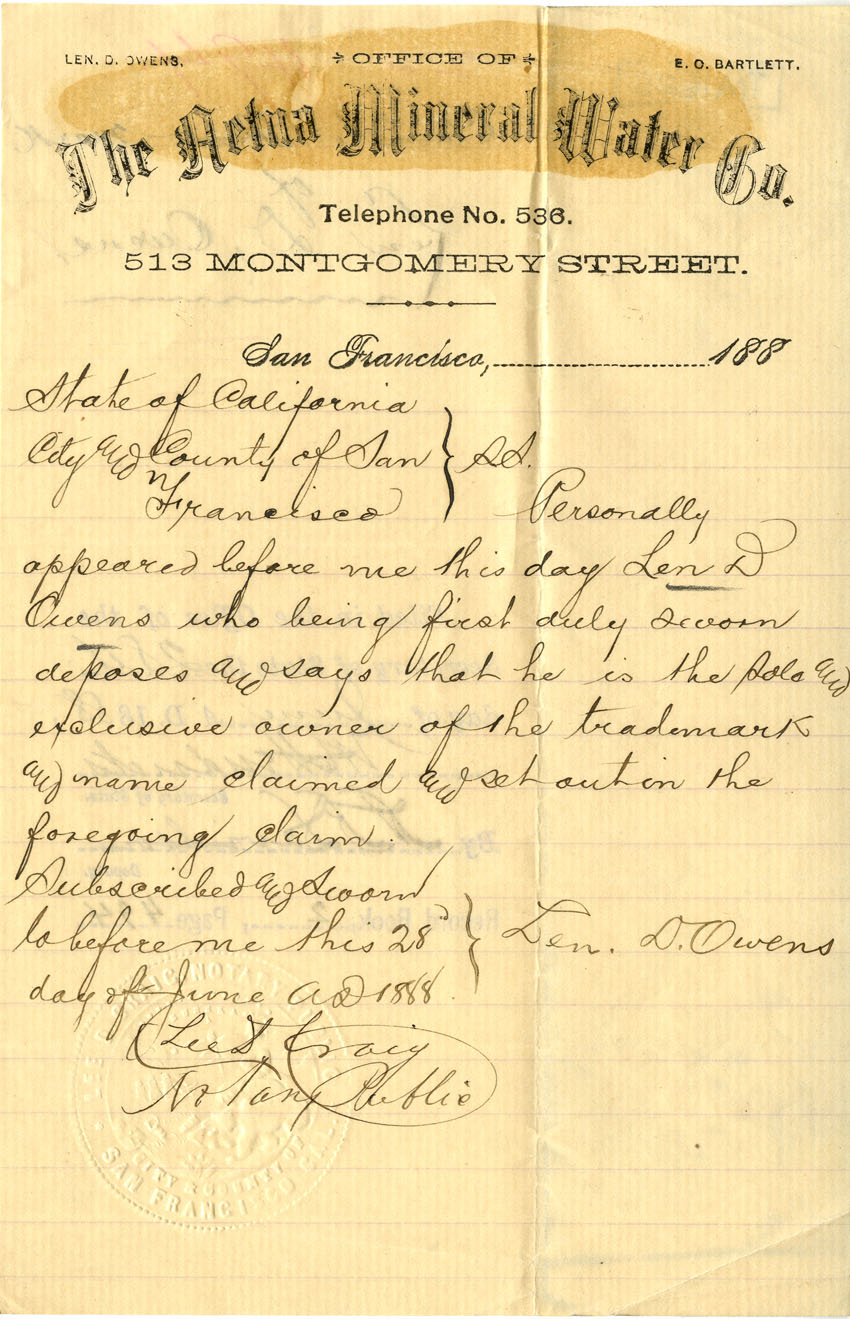 LEN. D. OWENS,
OFFICE OF
E. O. BARTLETT.
The Aetna Mineral Water Co.
Telephone No. 536.
513 MONTGOMERY STREET.
San Francisco, 188
State of California
City and County of San } SS.
Francisco } Personally
appeared before me this day Len D
Owens who being first duly sworn
deposes and says that he is the sole and
exclusive owner of the trademark
and name claimed and set out in the
foregoing claim.
Subscribed and Sworn
to before me this 28 } Len. D. Owens
day of June AD 1888
Lee D. Craig
Notary Public
SAN FRANCISCO CAL.